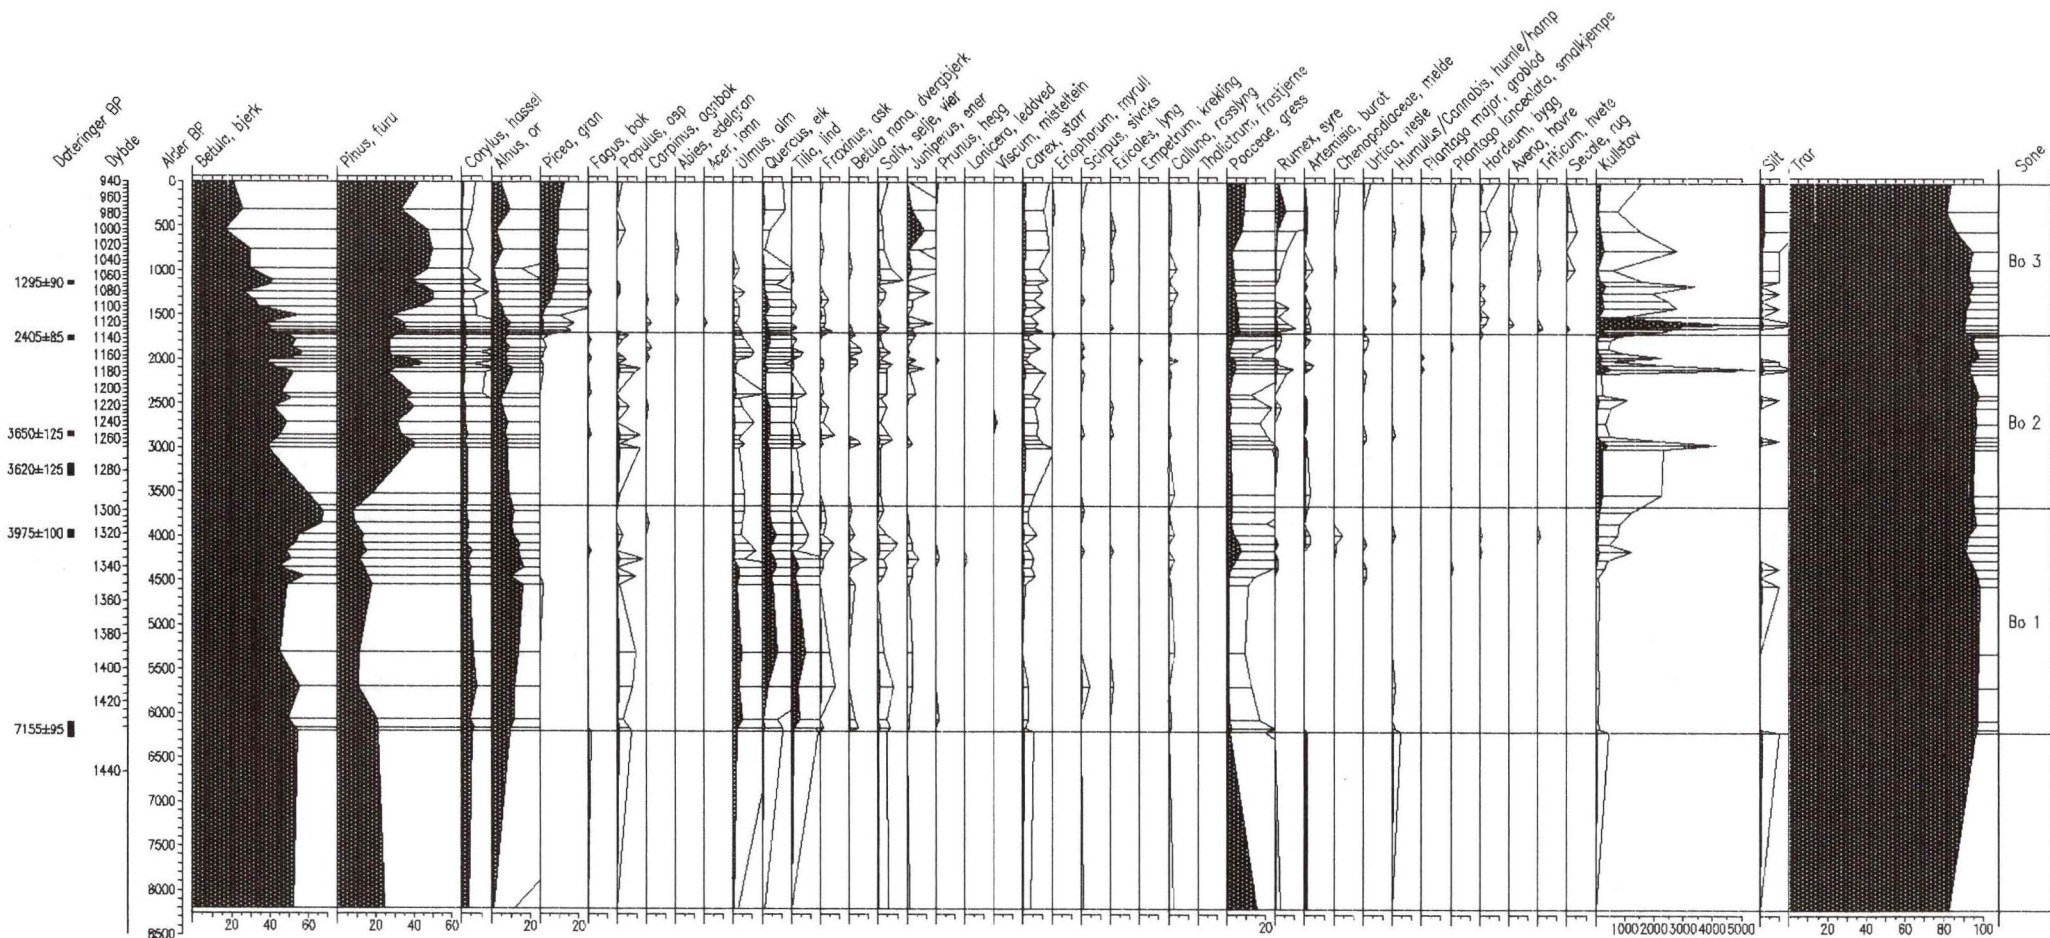 Dateringer BP
Dybde
Alder BP
Betula, bjerk
Pinus, furu
Corylus, hassel
Alnus, or
Picea, gran
Fagus, bøk
Populus, osp
Carpinus, agnbøk
Abies, edelgran
Acer, lønn
Ulmus, alm
Quercus, eik
Tilia, lind
Fraxinus, ask
Betula nana, dvergbjerk
Salix, selje, vier
Juniperus, ener
Prunus, hegg
Lonicera, leddved
Viscum, misteltein
Carex, starr
Eriophorum, myrull
Scirpus, sivaks
Ericales, lyng
Empetrum, krekling
Calluna, røsslyng
Thalictrum, frøstjerne
Poaceae, gress
Rumex, syre
Artemisia, burot
Chenopodiaceae, melde
Urtica, nesle
Humulus/Cannabis, humle/hamp
Plantago major, groblad
Plantago lanceolata, smalkjempe
Hordeum, bygg
Avena, havre
Triticum, hvete
Secale, rug
Kullstøv
Silt
Trær
Sone
1295±90
2405±85
3650±125
3620±125
3975±100
7155±95
940
960
980
1000
1020
1040
1060
1080
1100
1120
1140
1160
1180
1200
1220
1240
1260
1280
1300
1320
1340
1360
1380
1400
1420
1440
0
500
1000
1500
2000
2500
3000
3500
4000
4500
5000
5500
6000
6500
7000
7500
8000
8500
Bo 3
Bo 2
Bo 1
20 40 60
20 40 60
20
20
20
1000 2000 3000 4000 5000
20 40 60 80 100